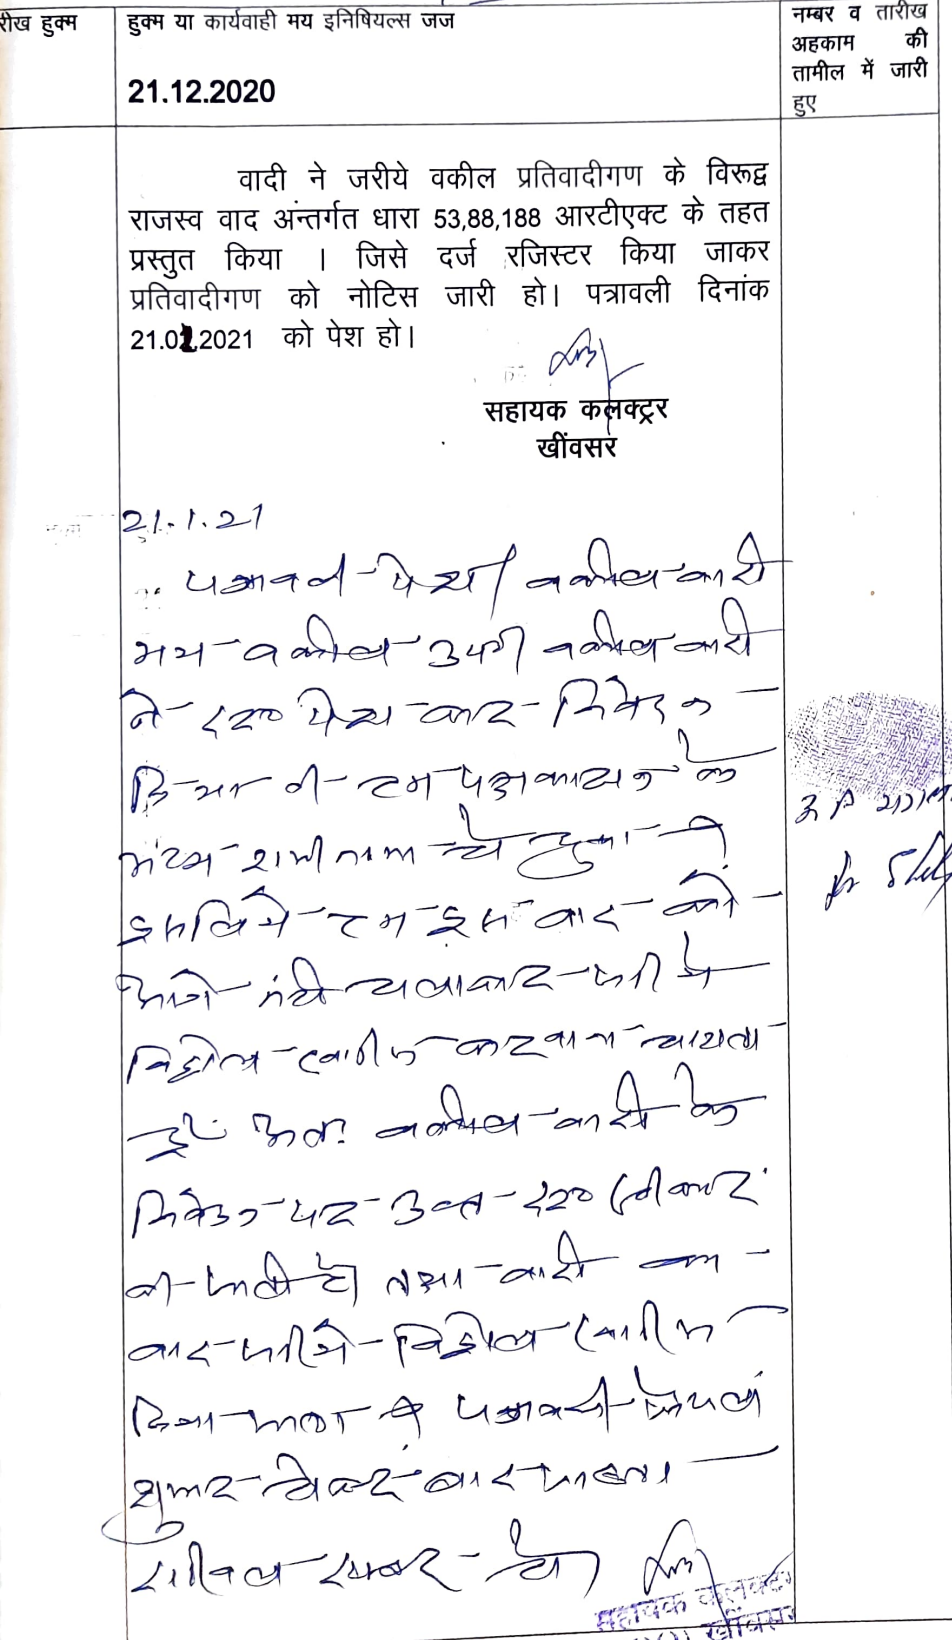 रीख हुक्म
हुक्म या कार्यवाही मय इनिषियल्स जज
21.12.2020
नम्बर व तारीख
अहकाम की
तामील में जारी
हुए
वादी ने जरीये वकील प्रतिवादीगण के विरूद्व
राजस्व वाद अंन्तर्गत धारा 53,88,188 आरटीएक्ट के तहत
प्रस्तुत किया । जिसे दर्ज रजिस्टर किया जाकर
प्रतिवादीगण को नोटिस जारी हो। पत्रावली दिनांक
21.01.2021 को पेश हो।
सहायक कलक्ट्रर
खींवसर
21.1.21
पत्रावली पेश। वकील वादी
मय वकील उप। वकील वादी
ने पेश कर निवेदन
किया की हम पक्षकारान के
मध्य राजीनामा हो चुका है
इसलिये हम इस वाद को
आगे नही चलाकर जरिये
विड्रोल खारीज करवाना चाहता
हूं अतः वकील वादी के
निवेदन पर उक्त स्वीकार
की जाती है। तथा वादी का
वाद जरिये विड्रोल खारीज
किया जाता है पत्रावली फैसल
शुमार होकर बाद
दाखिल दफ्तर हो।
सहायक कलक्टर
खींवसर